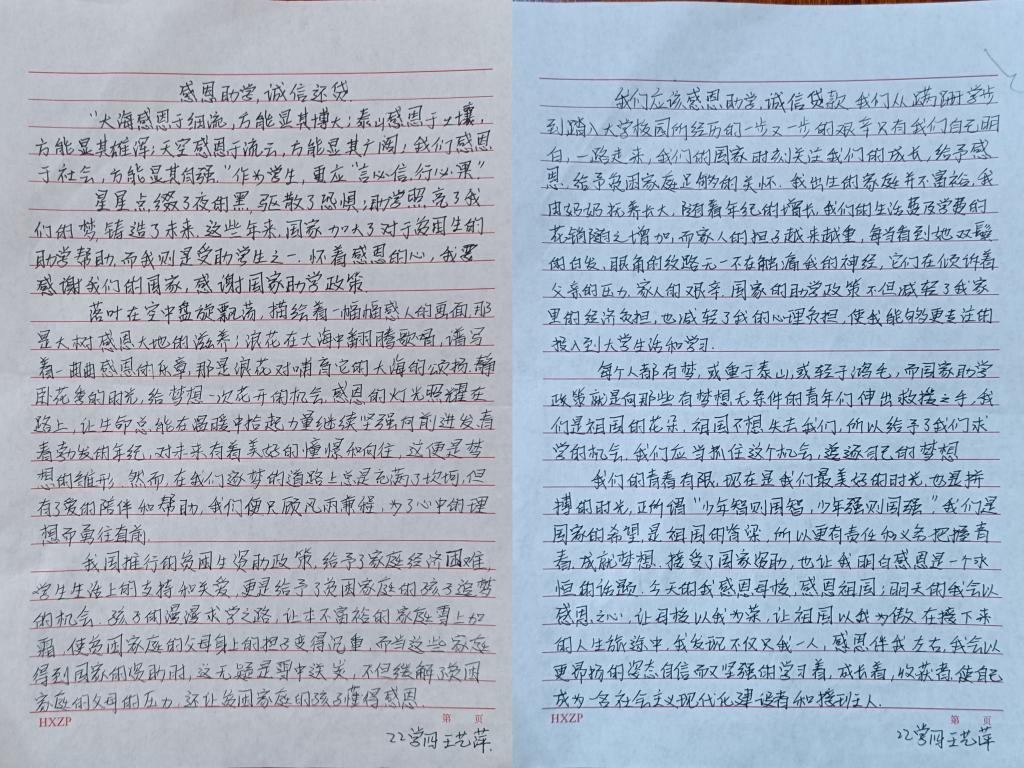 感恩助学,诚信还贷
"大海感恩于细流,方能显其博大;泰山感恩于土壤,
方能显其雄浑;天空感恩于流云,方能显其广阔;我们感恩
于社会,方能显其自强."作为学生,更应"言必信,行必果"
星星点缀了夜的黑,驱散了恐惧;助学照亮了我
们的梦,铸造了未来.这些年来,国家加大了对于贫困生的
助学帮助,而我则是受助学生之一.怀着感恩的心,我要
感谢我们的国家,感谢国家助学政策.
落叶在空中盘旋飘荡,描绘着一幅幅感人的画面,那
是大树感恩大地的滋养;浪花在大海中翻腾歌唱,谱写
着一曲曲感恩的乐章,那是浪花对哺育它的大海的颂扬.静
卧花香的时光,给梦想一次花开的机会,感恩的灯光照耀在
路上,让生命总能在温暖中拾起力量继续坚强向前迸发有
着勃发的年纪,对未来有着美好的憧憬和向往,这便是梦
想的雏形.然而,在我们逐梦的道路上总是充满了坎坷,但
有了爱的陪伴和帮助,我们便只顾风雨兼程,为了心中的理
想而勇往直前.
我国推行的贫困生资助政策,给予了家庭经济困难
学生生活上的支持和关爱,更是给予了贫困家庭的孩子追梦
的机会.孩子的漫漫求学之路,让本不富裕的家庭雪上加
霜,使贫困家庭的父母身上的担子变得沉重,而当这些家庭
得到国家的资助时,这无疑是雪中送炭,不但缓解了贫困
家庭的父母的压力,还让贫困家庭的孩子懂得感恩.
HXZP 第 页
22学前王艺萍.
我们应该感恩助学,诚信贷款.我们从蹒跚学步
到踏入大学校园所经历的一步又一步的艰辛只有我们自己明
白,一路走来,我们的国家时刻关注我们的成长,给予感
恩.给予贫困家庭足够的关怀.我出生的家庭并不富裕,我
由奶奶抚养长大,随着年纪的增长,我们的生活费及学费的
花销随之增加,而家人的担子越来越重,每当看到她双鬓
的白发,眼角的纹路无一不在触痛我的神经,它们在倾诉着
父亲的压力,家人的艰辛.国家的助学政策不但减轻了我家
里的经济负担,也减轻了我的心理负担,使我能够更专注的
投入到大学生活和学习.
每个人都有梦,或重于泰山,或轻于鸿毛,而国家助学
政策就是向那些有梦想无条件的青年们伸出救援之手,我
们是祖国的花朵,祖国不想失去我们,所以给予了我们求
学的机会.我们应当抓住这个机会,追逐自己的梦想.
我们的青春有限,现在是我们最美好的时光,也是拼
搏的时光,正所谓"少年智则国智,少年强则国强."我们是
国家的希望,是祖国的脊梁,所以更有责任和义务把握青
春,成就梦想.接受了国家资助,也让我明白感恩是一个永
恒的话题.今天的我感恩母校,感恩祖国;明天的我会以
感恩之心,让母校以我为荣,让祖国以我为傲.在接下来
的人生旅途中,我发现不仅只我一人,感恩伴我左右,我会以
更昂扬的姿态自信而又坚强的学习着,成长着,收获着,使自己
成为一名社会主义现代化建设者和接班人.
HXZP 第 页
22学前王艺萍.